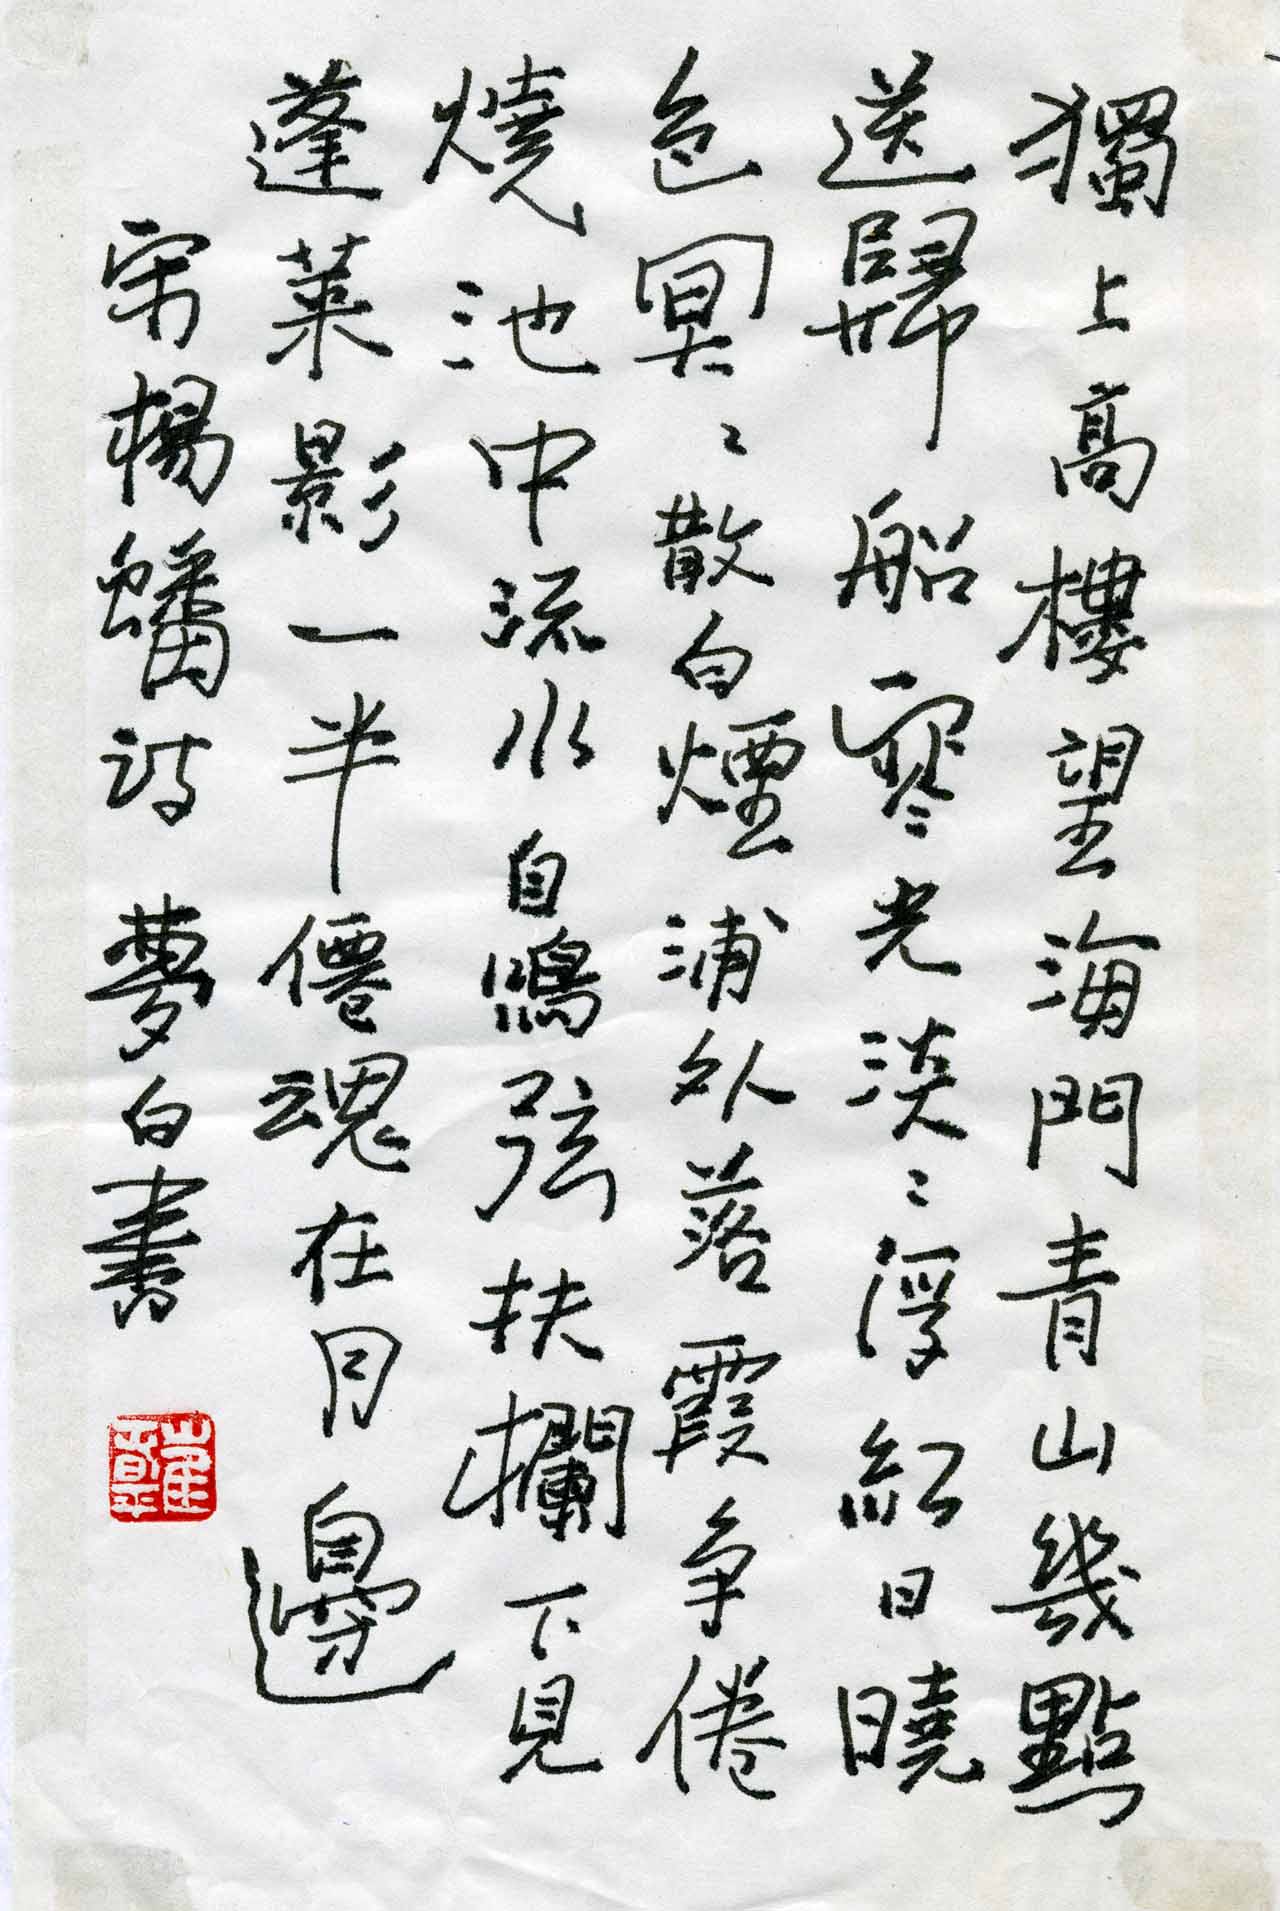 獨上高樓望海門青山幾點
送歸船寒光淡〻浮紅日曉
色冥〻散白煙浦外落霞争倦
燒池中流水自鳴弦扶欄下見
蓬萊影一半僊魂在月邊
宋楊蟠詩 夢白書